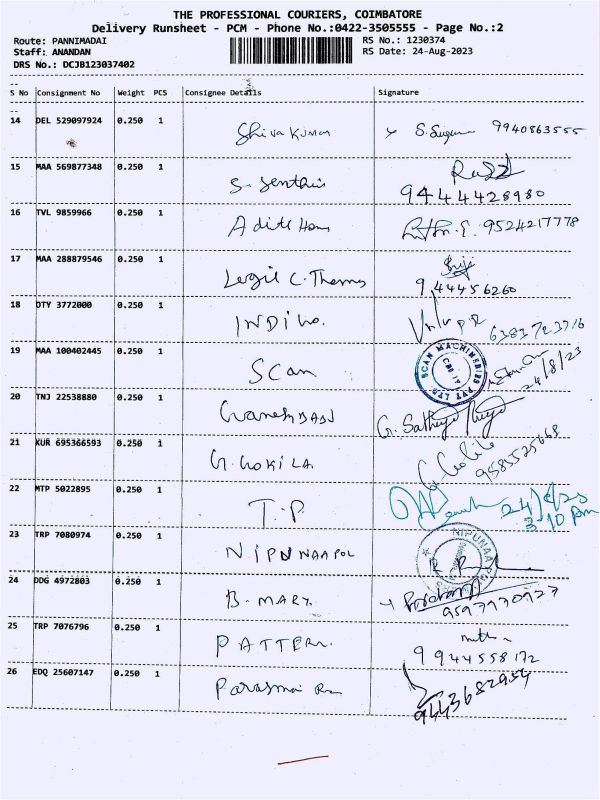 THE PROFESSIONAL COURIERS, COIMBATORE
Delivery Runsheet - PCM - Phone No.:0422-3505555 - Page No.:2
Route: PANNIMADAI
RS No.: 1230374
Staff: ANANDAN
RS Date: 24-Aug-2023
DRS No.: DCJB123037402
S No Consignment No Weight PCS Consignee Details Signature
14 DEL 529097924 0.250 1 Shiva Kumar 9940863555
15 MAA 569877348 0.250 1 S. Senthis
9444428980
16 TVL 9859966 0.250 1 9524217778
17 MAA 288879546 0.250 1 C. Thomas
944456260
18 DTY 3772000 0.250 1 INDIHO.
19 MAA 100402445 0.250 1 Scan SCAN MACHINERIES PVT LTD
24/8/23
20 TNJ 22538880 0.250 1 G. Sathiya
21 KUR 695366593 0.250 1 G. GOKILA
9585525668
22 MTP 5022895 0.250 1 T.P.
3.10 pm
23 TRP 7080974 0.250 1 NIPUNAAPOL
24 DDG 4972803 0.250 1 B. MARY.
25 TRP 7076796 0.250 1 PATTERN.
9944558172
26 EDQ 25607147 0.250 1
9443682954